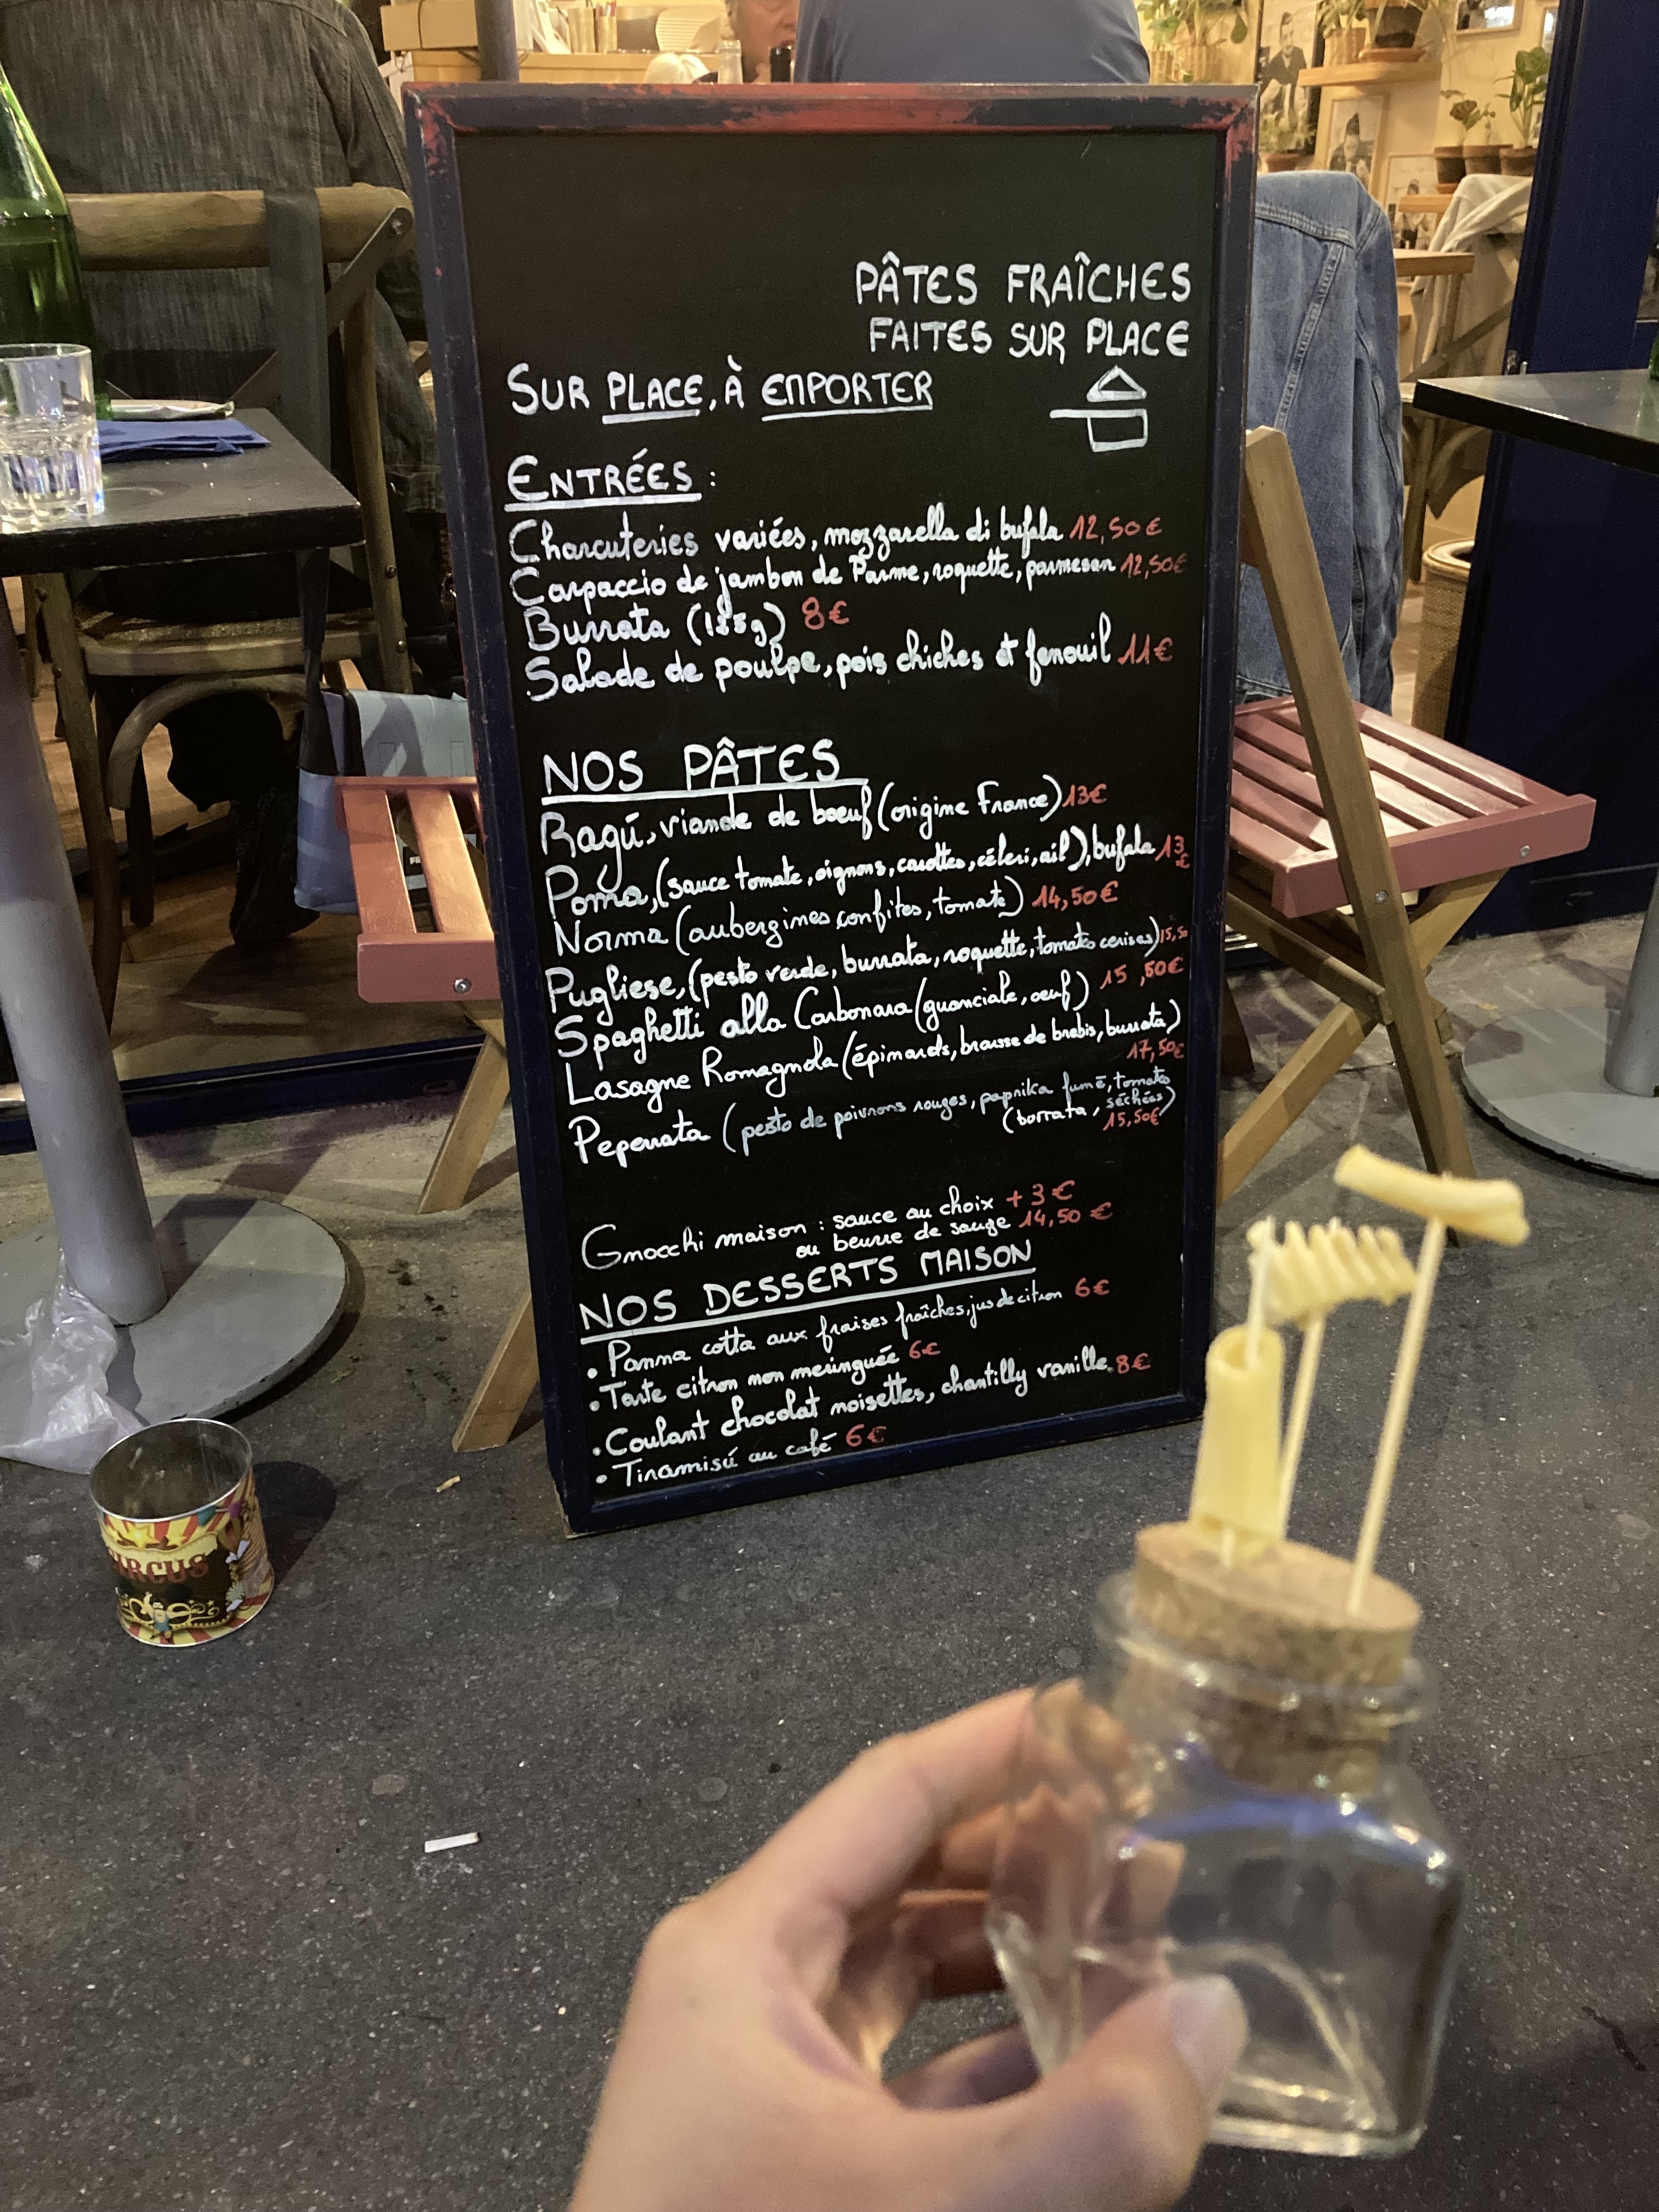 PÂTES FRAÎCHES
FAITES SUR PLACE
SUR PLACE, À EMPORTER
ENTRÉES :
Charcuteries variées, mozzarella di bufala 12,50€
Carpaccio de jambon de Parme, roquette, parmesan 12,50€
Burrata 8€
Salade de poulpe, pois chiches et fenouil 11€
NOS PÂTES
Ragú, viande de boeuf (origine France) 13€
Poma, (sauce tomate, oignons, carottes, céleri, ail), bufala 13€
Norma (aubergines confites, tomate) 14,50€
Pugliese, (pesto verde, burrata, roquette, tomates cerises) 15,50
Spaghetti alla Carbonara (guanciale, oeuf) 15,50€
Lasagne Romagnola (épinards, brousse de brebis, burrata)
17,50€
Peperrata (pesto de poivrons rouges, paprika fumé, tomates
séchées)
(borrata, 15,50€
Gnocchi maison : sauce au choix +3€
ou beurre de sauge 14,50€
NOS DESSERTS MAISON
• Panna cotta aux fraises fraîches, jus de citron 6€
• Tarte citron non meringuée 6€
• Coulant chocolat noisettes, chantilly vanille. 8€
• Tiramisú au café 6€
CIRCUS